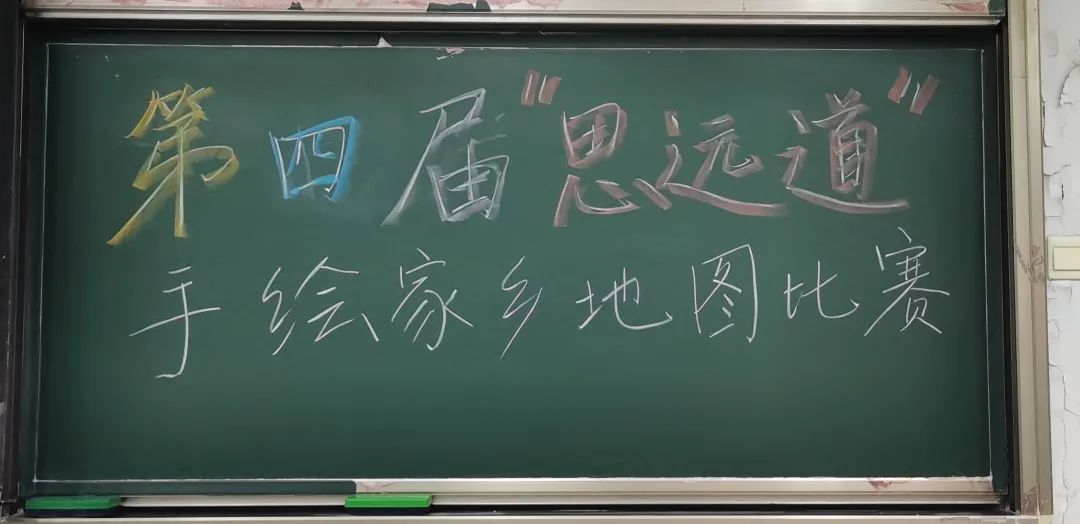 第四届"思远道"
手绘家乡地图比赛